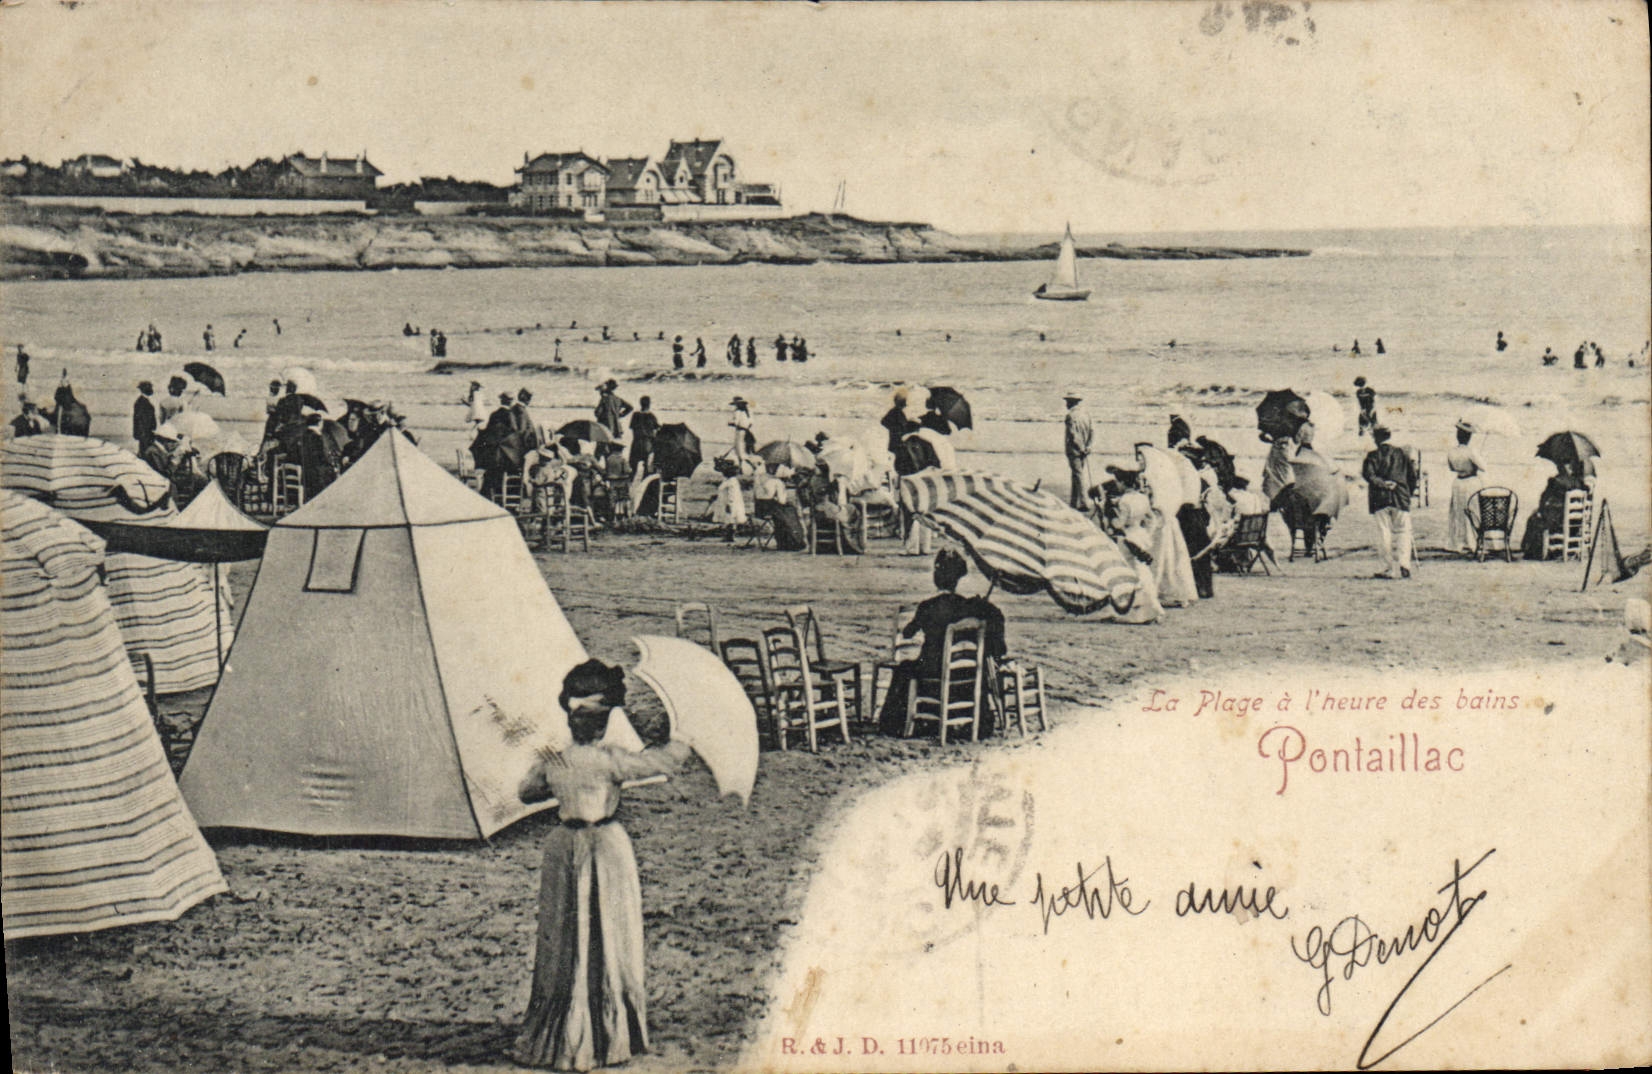 La Plage à l'heure des bains
Pontaillac
Une petite amie
G Denot
R. & J. D. 11075 eina